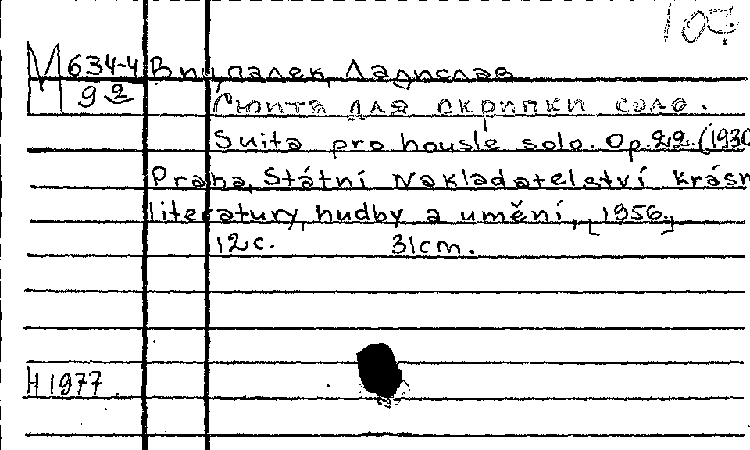 107
М 634-4 Выцпалек, Ладислав
9 2 Сюита для скрипки соло.
Suita pro housle solo. Op. 22. (1930
Praha, Státní Nakladatelství krásn
literatury, hudby a umění, [1956.]
12 с. 31 cm.
Н 1977